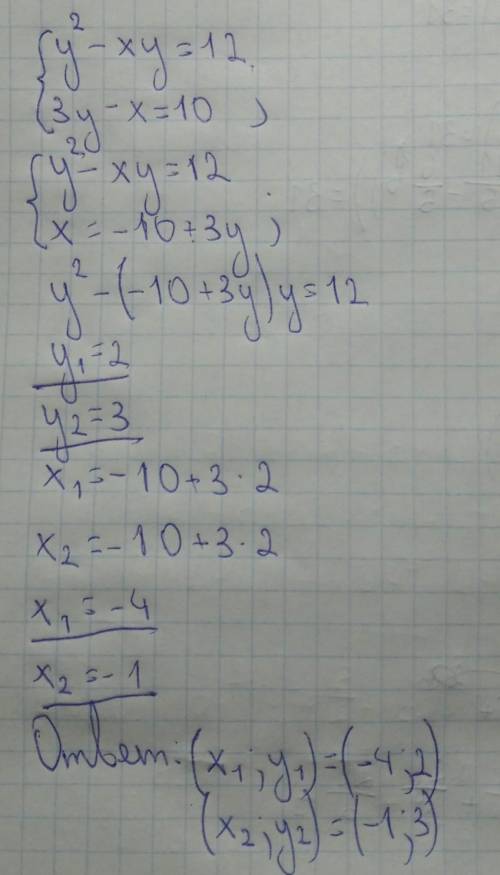 { y² - xy = 12
{ 3y - x = 10 ,
{ y² - xy = 12
{ x = -10 + 3y ,
y² - (-10 + 3y) y = 12
y₁ = 2
y₂ = 3
x₁ = -10 + 3 · 2
x₂ = -10 + 3 · 2
x₁ = -4
x₂ = -1
Ответ: (x₁ ; y₁) = (-4 ; 2)
(x₂ ; y₂) = (-1 ; 3)